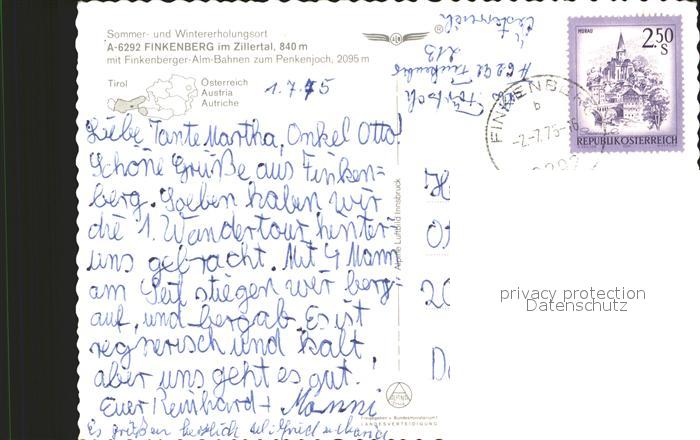 Sommer- und Wintererholungsort
A-6292 FINKENBERG im Zillertal, 840 m
mit Finkenberger-Alm-Bahnen zum Penkenjoch, 2095 m
Tirol
Österreich
Austria
Autriche
1.7.75
Liebe Tante Martha, Onkel Otto!
Schöne Grüße aus Finken=
berg. Soeben haben wir
die 1. Wandertour hinter-
uns gebracht. Mit 4 Mann
am Seil stiegen wir berg-
auf, und bergab. Es ist
regnerisch und kalt
aber uns geht es gut!
Euer Reinhard + Manni
Es grüßen herzlich
Alpine Luftbild Innsbruck
Freigegeben v. Bundesministerium f.
LANDESVERTEIDIGUNG
MURAU
2.50
S
REPUBLIK ÖSTERREICH
FINKENBE
b
-2.-7.75-16
6292
privacy protection
Datenschutz